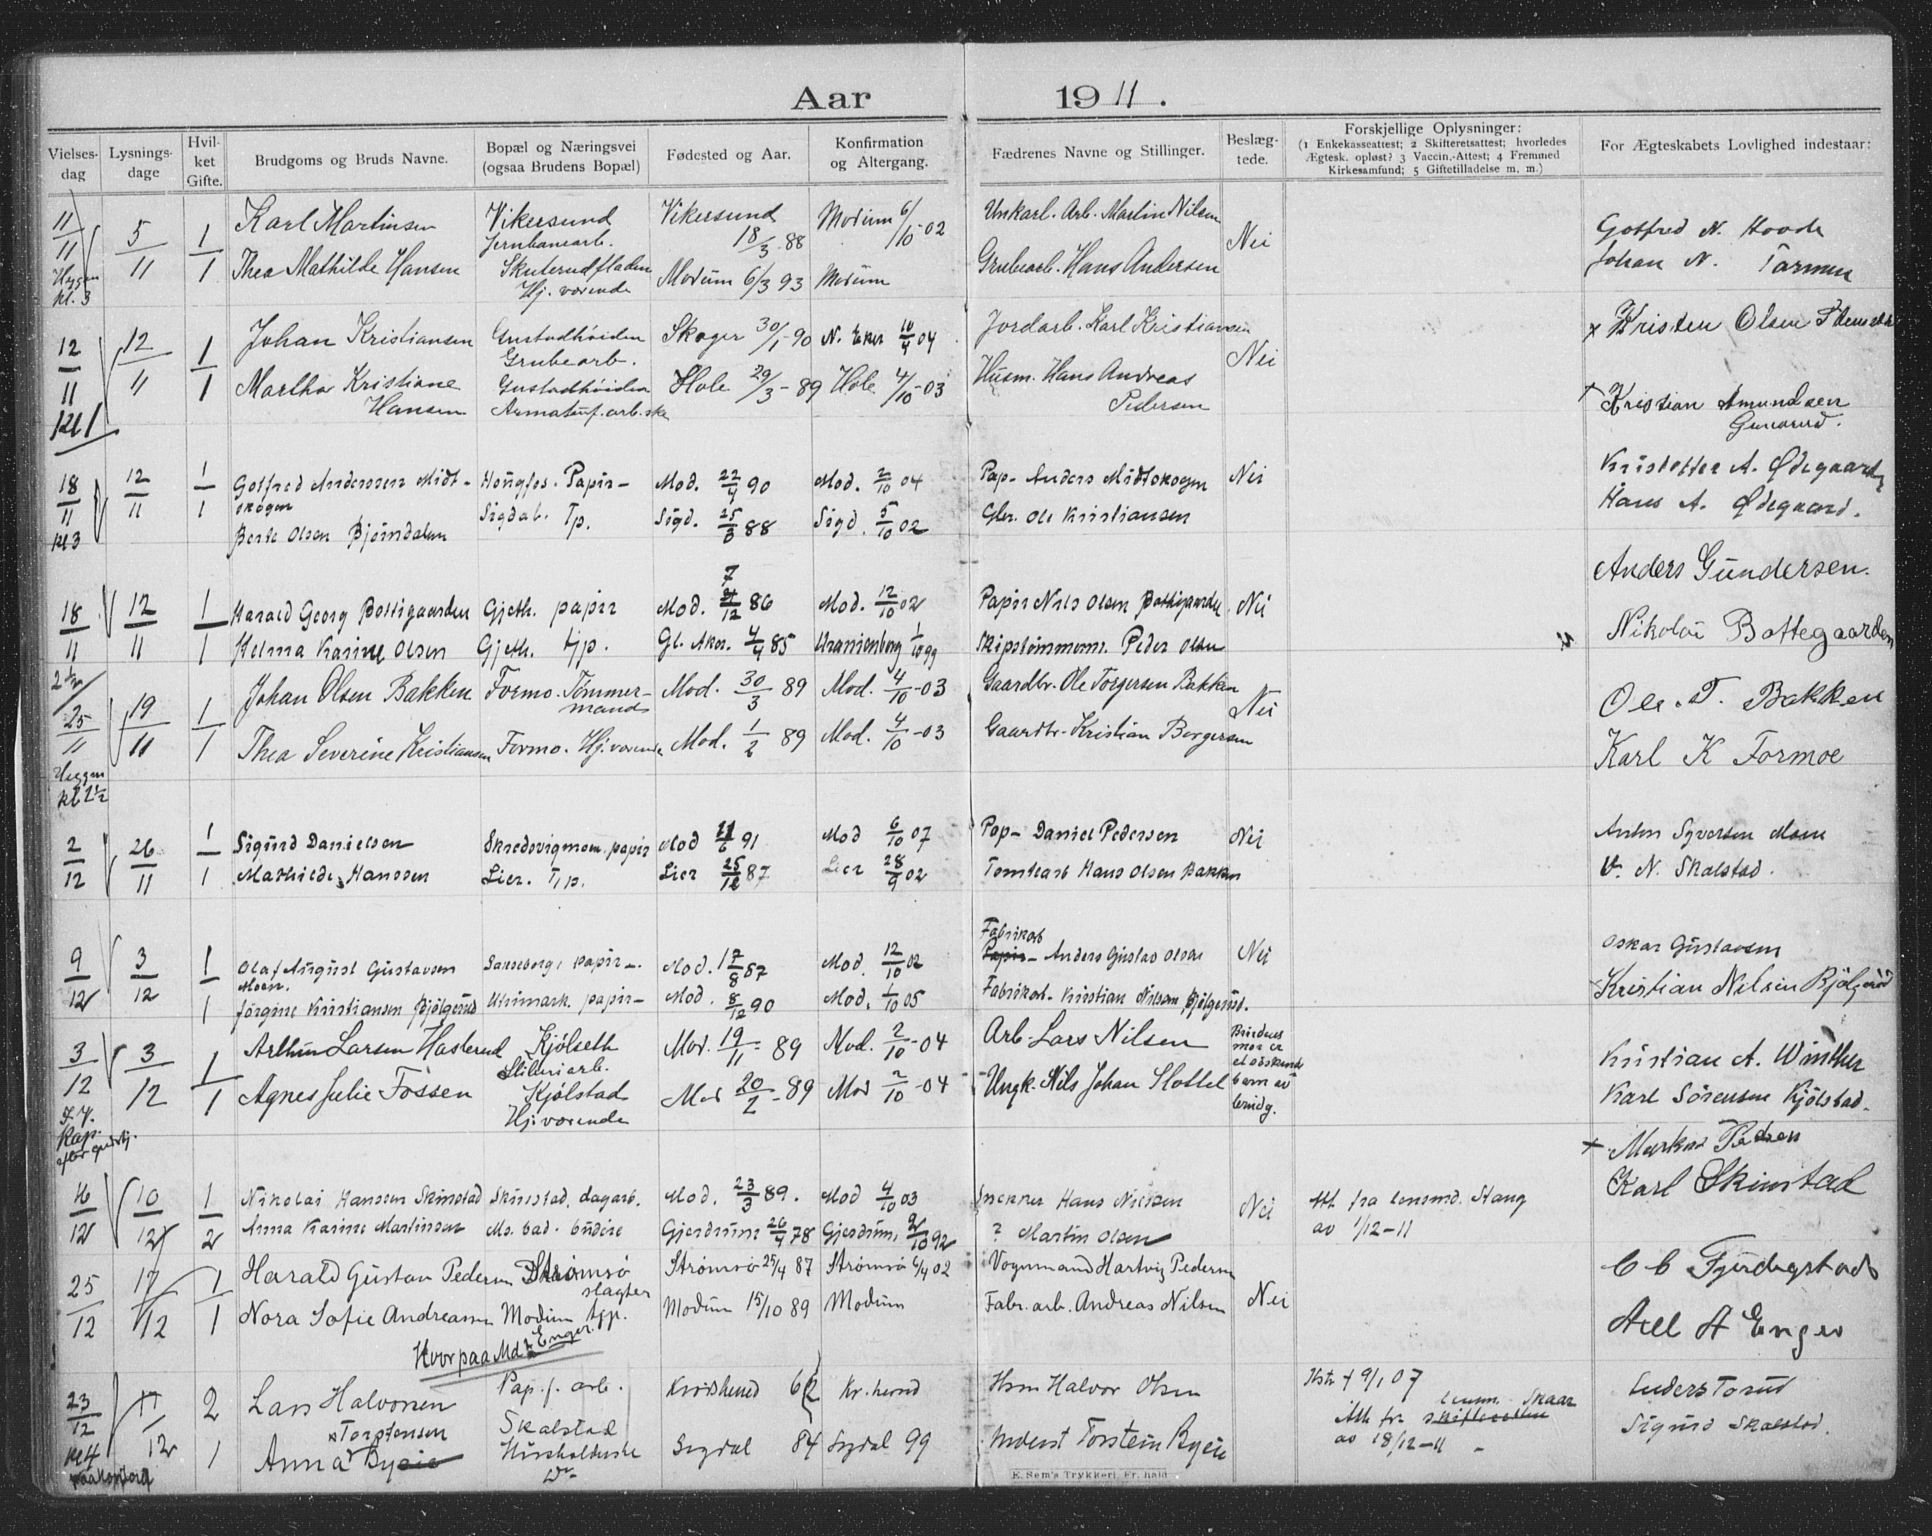 Aar 1911.
Vielses-dag
Lysnings-dage
Hvil-ket Gifte.
Brudgoms og Bruds Navne.
Bopæl og Næringsvei (ogsaa Brudens Bopæl)
Fødested og Aar.
Konfirmation og Altergang.
Fædrenes Navne og Stillinger.
Beslæg-tede.
Forskjellige Oplysninger:
(1 Enkekasseattest; 2 Skifteretsattest; hvorledes
Ægtesk. opløst? 3 Vaccin.-Attest; 4 Fremmed
Kirkesamfund; 5 Giftetilladelse m. m.)
For Ægteskabets Lovlighed indestaar:
11/11 5/11 1 Karl Martinsen Vikersund Vikersund 18/3 88 Modum 6/10-02 Unkarl. Arb. Martin Nilsen Nei Gotfred N. Hovde
Jernbanearb.
Heggen kl. 3 1 Thea Mathilde Hansen Skuterudfladen Modum 6/3 93 Modum Grubearb. Hans Andersen Johan N.
Hj. værende
12/11 12/11 1 Johan Kristiansen Gustadhøiden Skoger 30/1-90 N. Eker 10/4 04 Jordarb. Karl Kristiansen Nei x Kristen Olsen
Grubearb.
kl 1 1 Martha Kristiane Gustadhøiden Hole 29/3-89 Hole 4/10-03 Husm. Hans Andreas Kristian Amundsen
Hansen Pedersen
18/11 12/11 1 Gotfred Anderssen Midt- Hougfos. Papir- Mod. 22/4 90 Mod. 2/10 04 Pap- Anders Midtskogen Nei Kristoffer A. Ødegaarden
skogen
kl 3 1 Berte Olsen Bjørndalen Sigdal. Tp. Sigd. 25/3 88 Sigd. 5/10 02 Gbr. Ole Kristiansen Hans A. Ødegaard.
Anders Gundersen.
18/11 12/11 1 Harald Georg Bottegaarden Gjeth. papir Mod. 7/12 86 Mod. 12/10 02 Papir Nils Olsen Bottegaarden Nei
1 Helma Karine Olsen Gjeth. tjp. Gl. Aker. 4/4 85 Uranienborg 1/10 99 Skipstømmerm. Peder Olsen Nikolai Bottegaarden
25/11 19/11 1 Johan Olsen Bakken Formo. Tømmer- Mod. 30/3 89 Mod. 4/10-03 Gaardbr. Ole Torgersen Bakken Nei Ole. T. Bakken
mand
Heggen kl 2½ 1 Thea Severine Kristiansen Formo. Hj. værende Mod. 1/2 89 Mod. 4/10-03 Gaardbr. Kristian Borgersen Karl K Formoe
2/12 26/11 1 Sigurd Danielsen Skredsvigmoen. papir Mod 6 91 Mod 6/10 07 Pap- Daniel Pedersen Nei Anton Syversen Moen
1 Mathilde Hanssen Lier. Tjp. Lier 25/12 87 Lier 28/9 02 Tomtearb Hans Olsen Bakken N. Skalstad.
9/12 3/12 1 Olaf August Gustavsen papir-. Mod. 17/8 87 Mod. 12/10 02 Fabrikarb Papir- Anders Gustav Olsen Nei Oskar Gustavsen
Moen.
1 Jørgine Kristiansen Bjølgerud papir- Mod. 8/12 90 Mod. 1/10 05 Fabrikarb. Kristian Nilsen Bjølgerud. Kristian Nilsen Bjølgerud
3/12 3/12 1 Arthur Larsen Hasterud Kjølseth Mod. 19/11-89 Mod. 2/10-04 Arb. Lars Nilsen Brudens mor er Kristian A. Winther
Sliberiarb.
1 Agnes Julie Fossen Kjølstad Mod 20/2-89 Mod 2/10-04 Ungk. Nils Johan Slottet Karl Sørensen Kjølstad.
Hj. værende
x Markus
16/12 10/12 1 Nikolai Hanssen Skinstad Skinstad, dagarb. Mod. 23/3 89. Mod 4/10 03 Snekker Hans Nielsen Nei Att. fra lensmd. Stang Karl Skinstad
2 Anna Karine Martinsen Mo. bad. budeie Gjerdrum 26/4 78 Gjerdrum, 2/10 92 ? Martin Olsen av 1/12-11
25/12 17/12 1 Harald Gustav Pedersen Strømsø Strømsø 25/4 87 Strømsø 6/4 02 Vognmand Hartvig Pedersen Nei C C
slagter
1 Nora Sofie Andreasen Modum tjp. Modum 15/10 89 Modum Fabr. arb. Andreas Nilsen Axel A Enger
Hvor paa Md? Enger.
23/12 17/12 2 Lars Halvorsen Pap. f. arb. Krødsherred 62 Kr. herred Hsm Halvor Olsen Hstr † 9/1 07
Skalstad Att. fr. lensm. Skaar skifteretten Sigurd Skalstad.
kl 4 1 Anna Torstensen Byeie Husholderske Sigdal 84 Sigdal 99 Inderst Torstein Byeie av 18/12-11
E. Sem's Trykkeri, Fr.hald